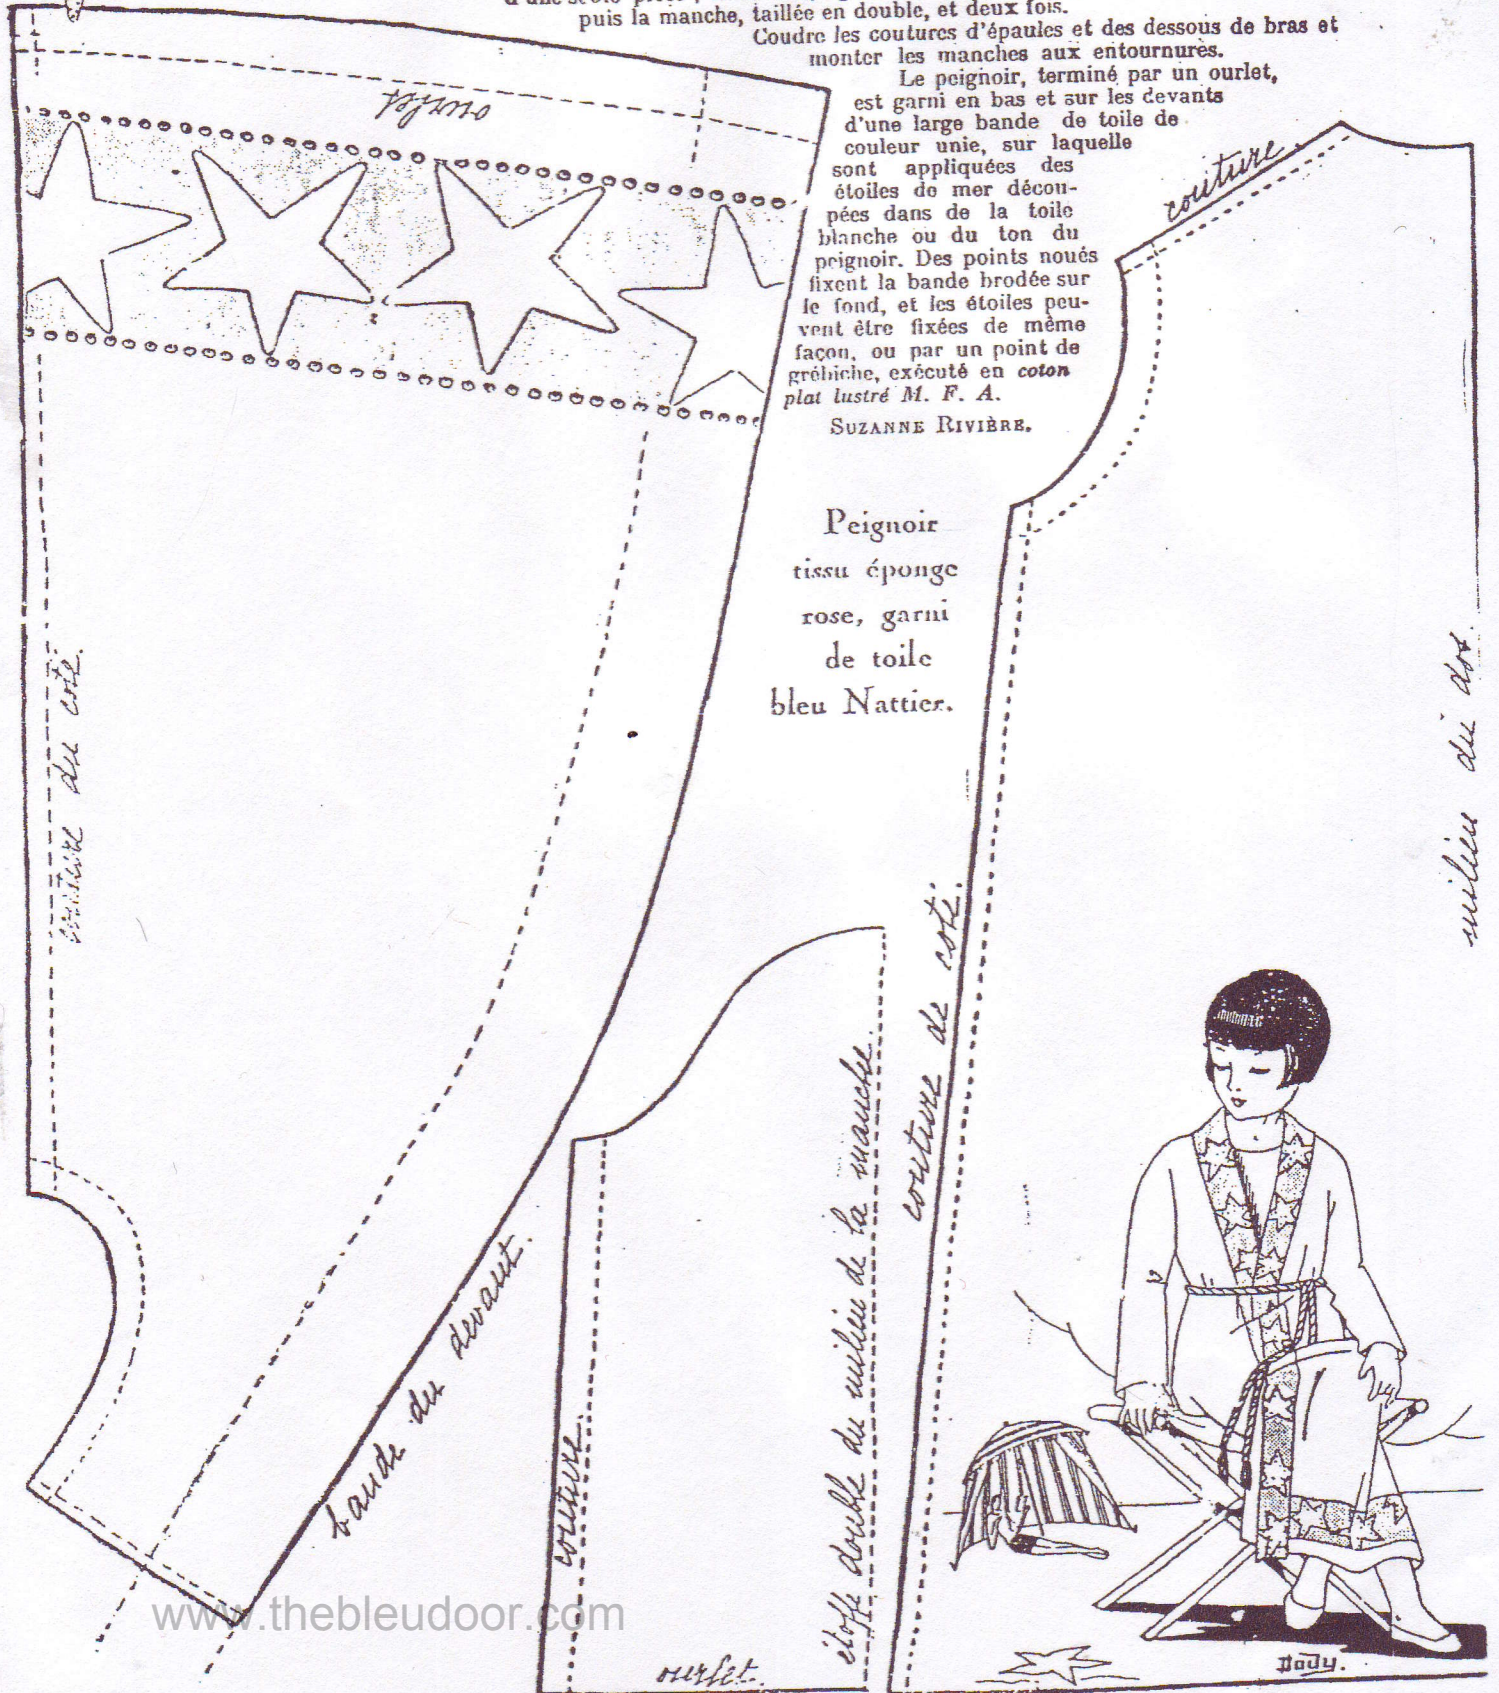 puis la manche, taillée en double, et deux fois.
Coudre les coutures d'épaules et des dessous de bras et
monter les manches aux entournures.
Le peignoir, terminé par un ourlet,
est garni en bas et sur les devants
d'une large bande de toile de
couleur unie, sur laquelle
sont appliquées des
étoiles de mer décou-
pées dans de la toile
blanche ou du ton du
peignoir. Des points noués
fixent la bande brodée sur
le fond, et les étoiles peu-
vent être fixées de même
façon, ou par un point de
grébiche, exécuté en coton
plat lustré M. F. A.
SUZANNE RIVIÈRE.
Peignoir
tissu éponge
rose, garni
de toile
bleu Nattier.
ourlet
couture
couture du coté.
milieu du dos.
couture de coté.
étoffe double du milieu de la manche.
bande du devant.
couture.
ourlet.
Body.
www.thebleudoor.com